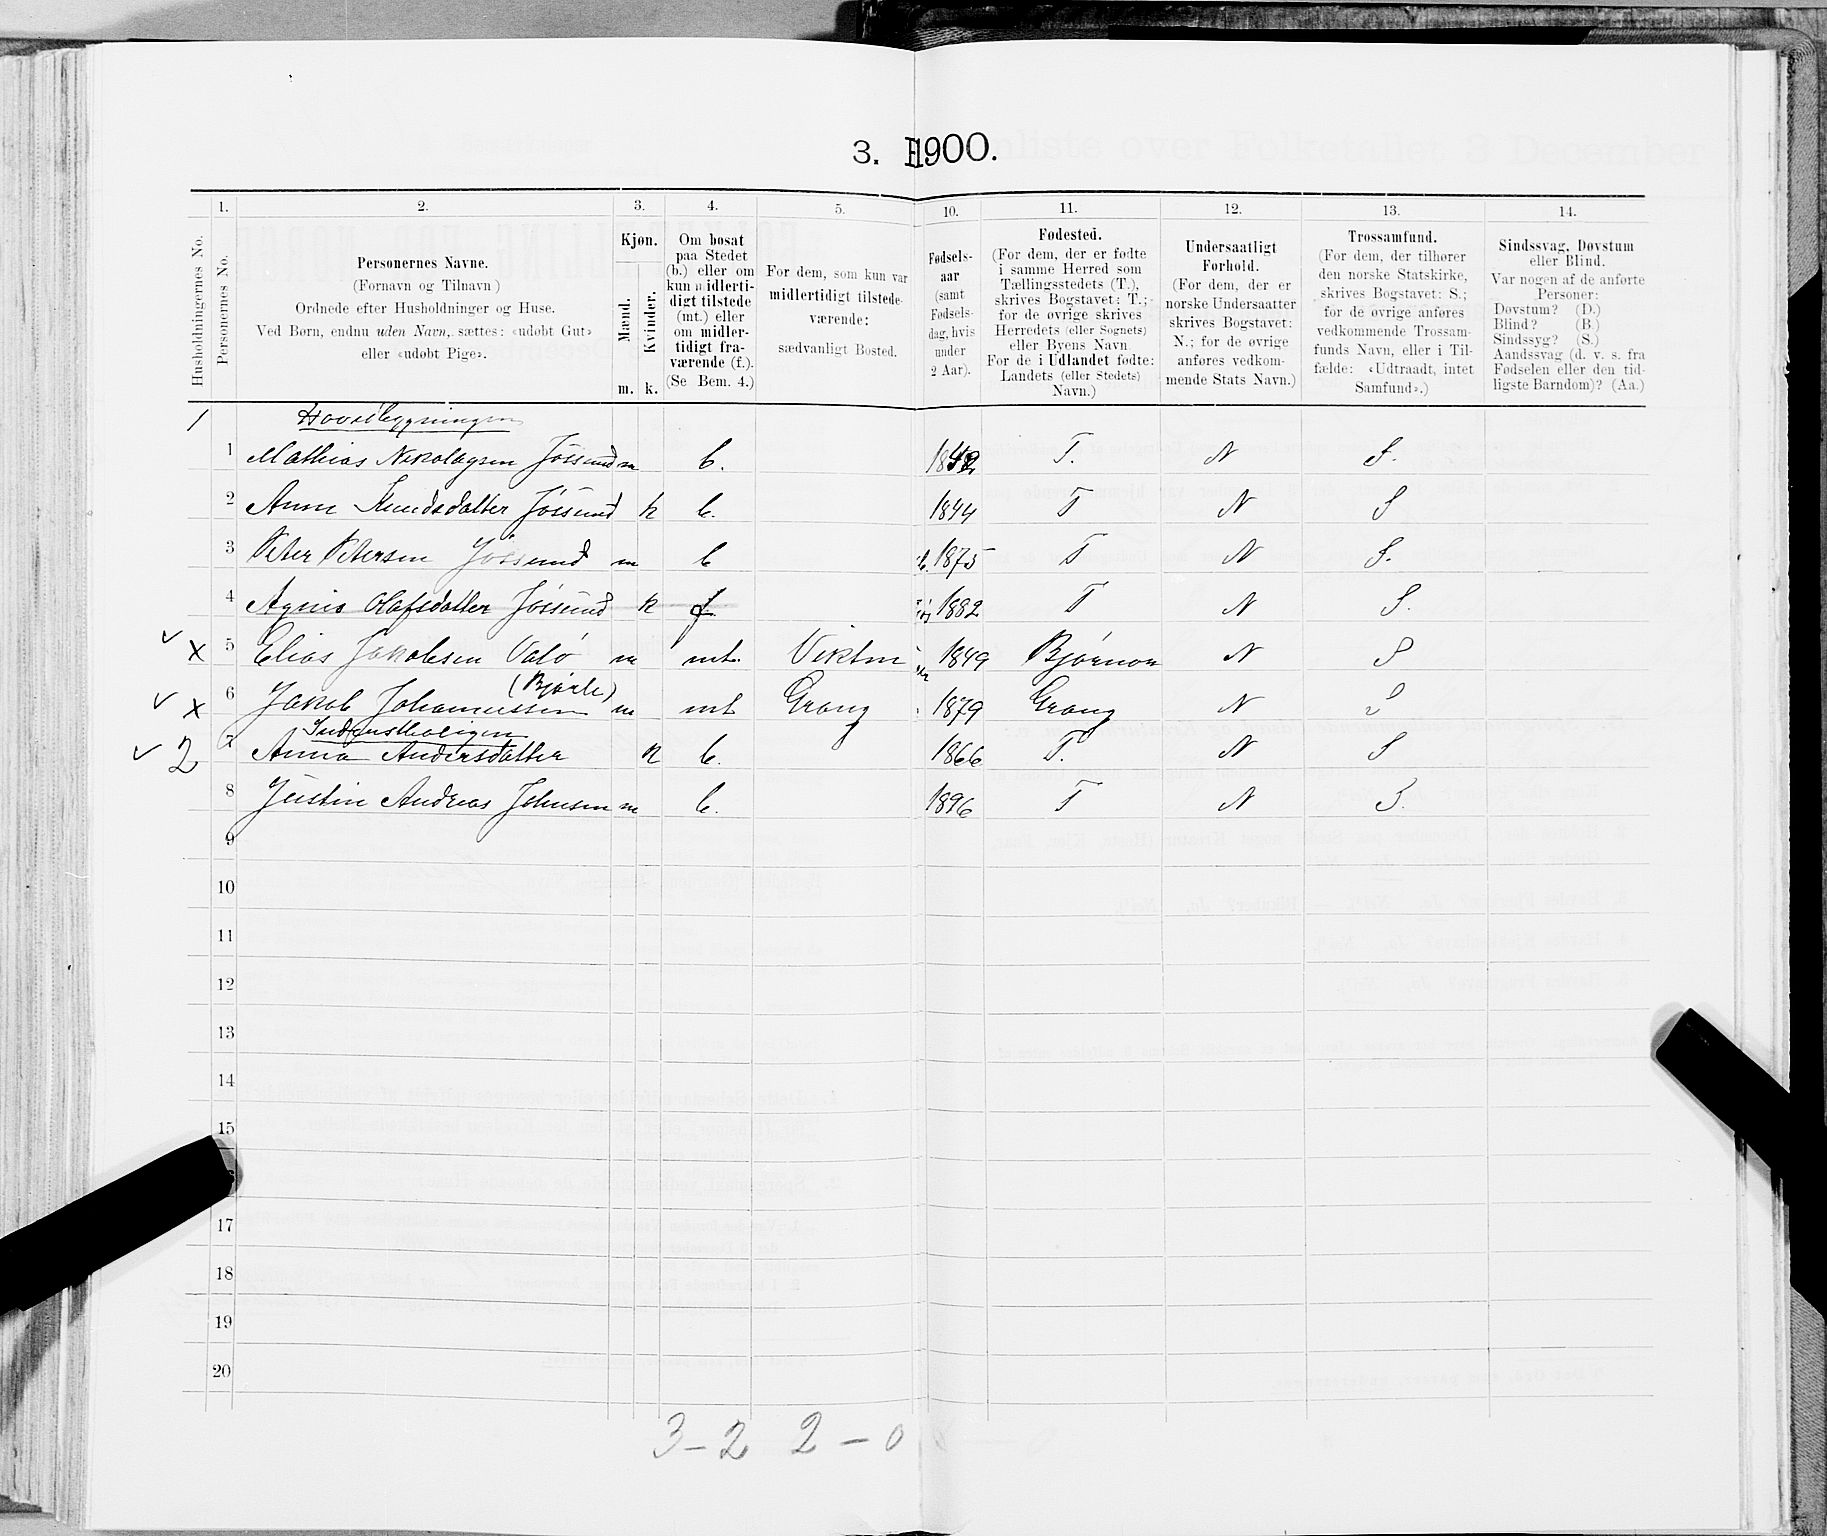 3. 1900.
1. 2. 3. 4. 5. 10. 11. 12. 13. 14.
Husholdningernes No.
Personernes No.
Personernes Navne.
(Fornavn og Tilnavn)
Ordnede efter Husholdninger og Huse.
Ved Børn, endnu uden Navn, sættes: «udøbt Gut»
eller «udøbt Pige».
Kjøn.
Mænd.
Kvinder.
m. k.
Om bosat
paa Stedet
(b.) eller om
kun midlerti-
digt tilstede
(mt.) eller
om midler-
tidigt fra-
værende (f.).
(Se Bem. 4.)
For dem, som kun var
midlertidigt tilstede-
værende:
sædvanligt Bosted.
Fødsels-
aar
(samt
Fødsels-
dag, hvis
under
2 Aar).
Fødested.
(For dem, der er fødte
i samme Herred som
Tællingsstedets (T.),
skrives Bogstavet: T.;
for de øvrige skrives
Herredets (eller Sognets)
eller Byens Navn.
For de i Udlandet fødte:
Landets (eller Stedets)
Navn.)
Undersaatligt
Forhold.
(For dem, der er
norske Undersaatter
skrives Bogstavet:
N.; for de øvrige
anføres vedkom-
mende Stats Navn.)
Trossamfund.
(For dem, der tilhører
den norske Statskirke,
skrives Bogstavet: S.;
for de øvrige anføres
vedkommende Trossam-
funds Navn, eller i Til-
fælde: «Udtraadt, intet
Samfund».)
Sindssvag, Døvstum
eller Blind.
Var nogen af de anførte
Personer:
Døvstum? (D.)
Blind? (B.)
Sindssyg? (S.)
Aandssvag (d. v. s. fra
Fødselen eller den tid-
ligste Barndom)? (Aa.)
1 Hovedbygningen
1 Mathias Nikolaysen Jøssund m b. T. N S.
2 Anne Knudsdatter Jøssund k b. 1844 T N S
3 Peter Petersen Jøssund m b 1875 T N S.
4 Agnis Olafsdatter Jøssund k f 1882 T N S.
x 5 Elias Jakobsen Valø m mt. Viktn 1849 Bjørnør N S
(Bjørli)
x 6 Jakob Johannessen m mt Grong 1879 Grong N S
Inderstboligen
2 7 Anna Andersdatter k b. 1866 T. N S
8 Justin Andreas Johnsen m b. 1896 T N S.
9
10
11
12
13
14
15
17
18
19
20
3-2 2-0